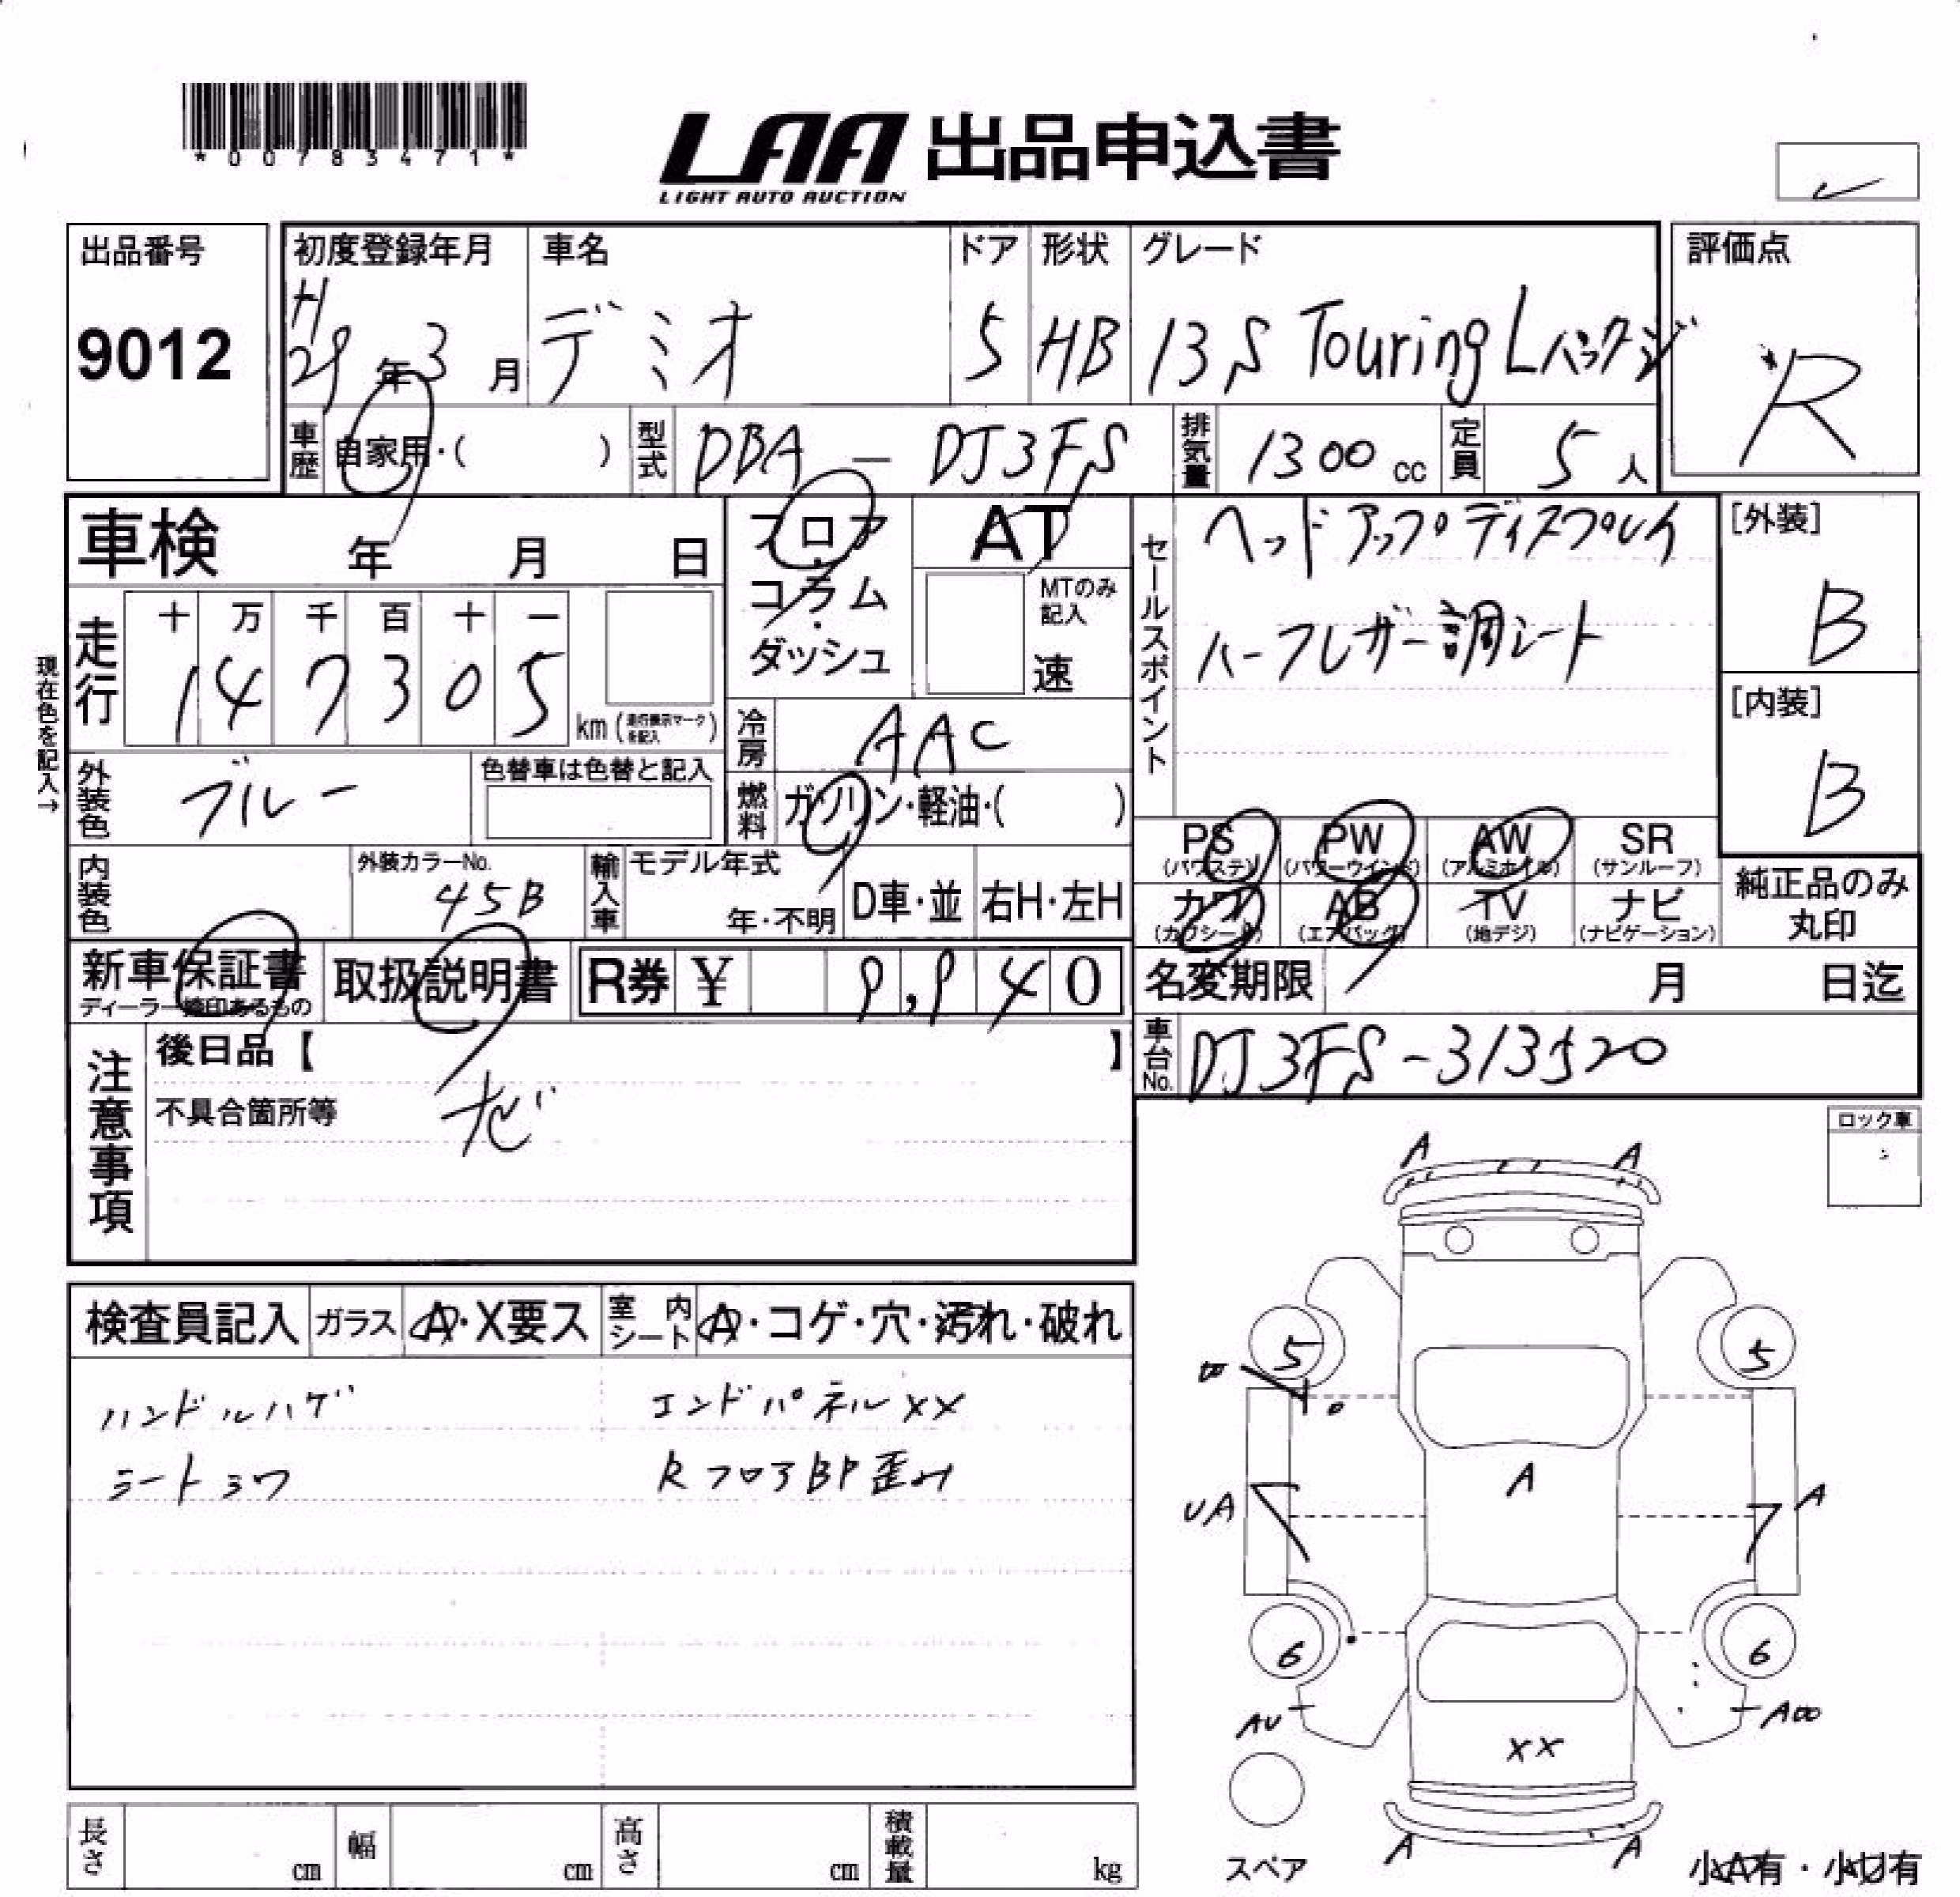 *00783471*
LAA 出品申込書
LIGHT AUTO AUCTION
出品番号
9012
初度登録年月
H
29年3月
車名
デミオ
ドア
5
形状
HB
グレード
13S Touring Lパッケージ
評価点
R
車歴
自家用・( )
型式
DBA - DJ3FS
排気量
1300cc
定員
5人
車検 年 月 日
フロア・コラム・ダッシュ
AT
MTのみ記入
速
セールスポイント
ヘッドアップディスプレイ
ハーフレザー調シート
[外装]
B
[内装]
B
現在色を記入→
走行
十 万 千 百 十 一
1 4 7 3 0 5
km(走行表示マークを記入)
冷房
AAC
燃料
ガソリン・軽油・( )
外装色
ブルー
色替車は色替と記入
内装色
外装カラーNo.
45B
輸入車
モデル年式
年・不明
D車・並
右H・左H
PS
(パワステ)
PW
(パワーウインド)
AW
(アルミホイル)
SR
(サンルーフ)
カワ
(カワシート)
AB
(エアバッグ)
TV
(地デジ)
ナビ
(ナビゲーション)
純正品のみ
丸印
新車保証書
ディーラー捺印あるもの
取扱説明書
R券 ¥ 9,940
名変期限 月 日迄
車台No.
DJ3FS-313520
注意事項
後日品【 】
不具合箇所等
ナビ
ロック車
検査員記入
ガラス
A・X要ス
室内シート
A・コゲ・穴・汚れ・破れ
ハンドルハゲ
シートシワ
エンドパネルXX
RフロアBP歪み
A
A
5
5
A
UA
A
6
6
AU
XX
A
A
スペア
小A有・小U有
長さ cm
幅 cm
高さ cm
積載量 kg